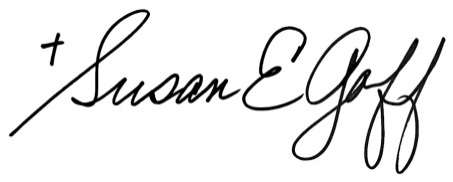 + Susan E Goff